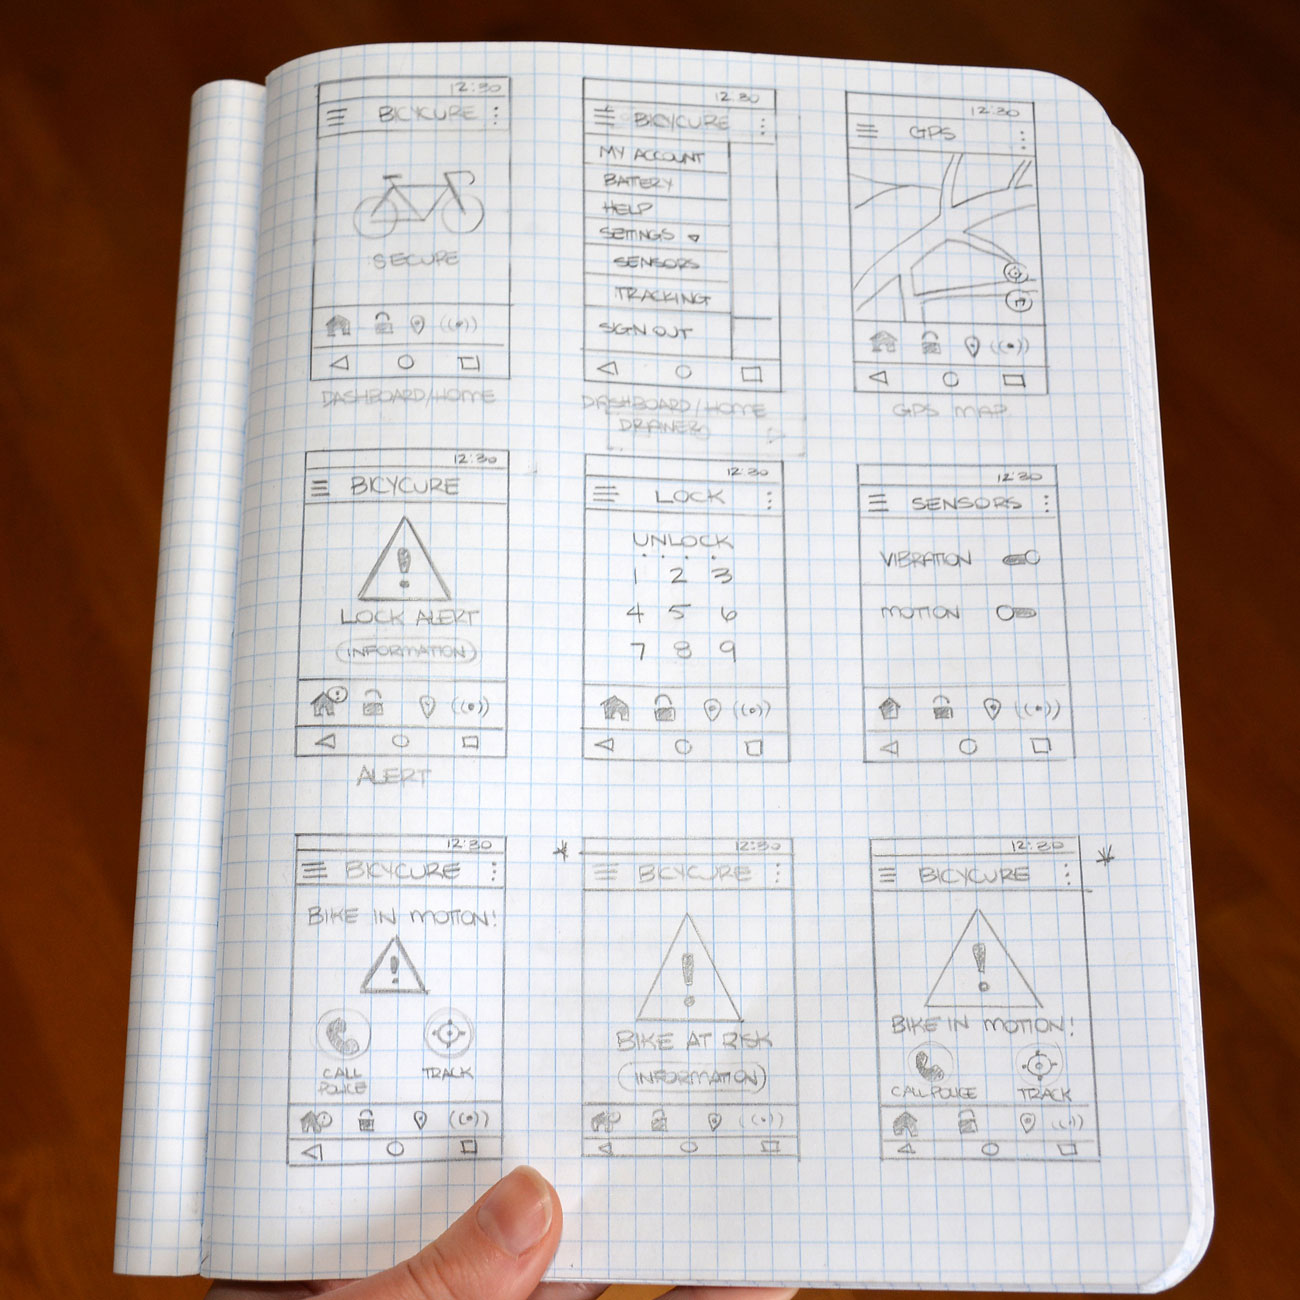 12:30
BICYCURE
SECURE
DASHBOARD/HOME
12:30
BICYCURE
MY ACCOUNT
BATERY
HELP
SETTINGS
SENSORS
TRACKING
SIGN OUT
DASHBOARD/HOME
12:30
GPS
GPS MAP
12:30
BICYCURE
LOCK ALERT
INFORMATION
ALERT
12:30
LOCK
UNLOCK
1 2 3
4 5 6
7 8 9
12:30
SENSORS
VIBRATION
MOTION
12:30
BICYCURE
BIKE IN MOTION!
CALL
POLICE
TRACK
*
12:30
BICYCURE
BIKE AT RISK
INFORMATION
12:30
*
BICYCURE
BIKE IN MOTION!
CALL POLICE
TRACK